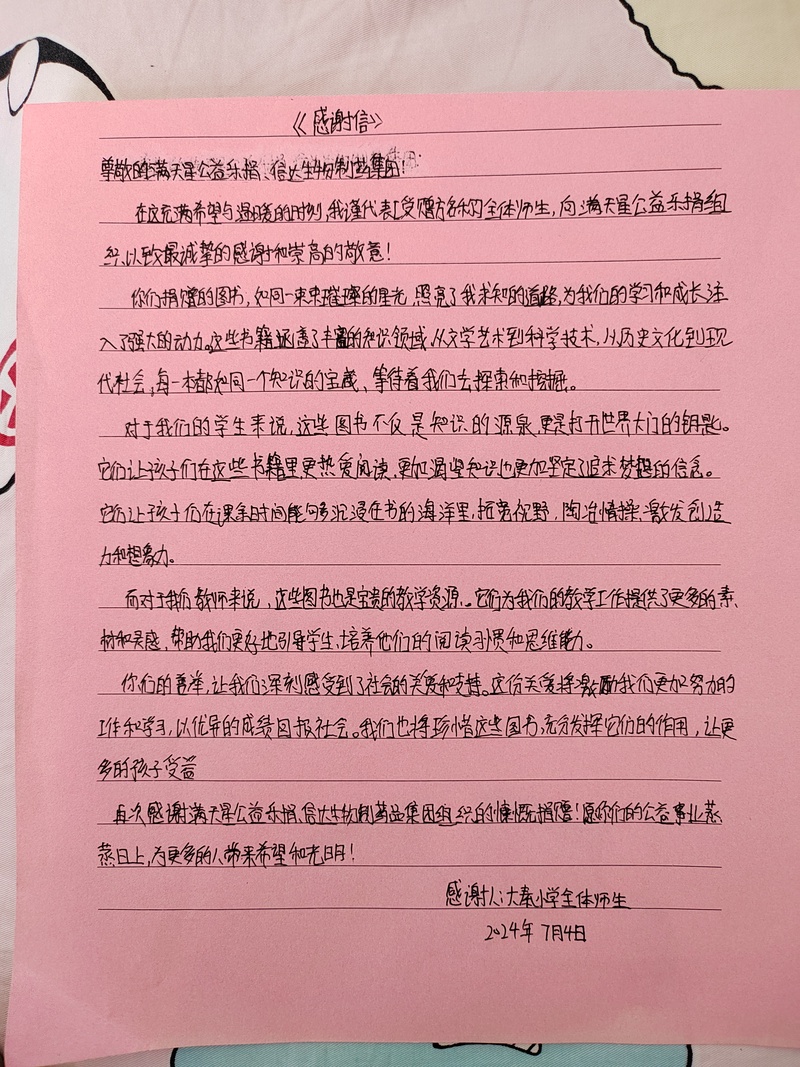 《感谢信》
尊敬的满天星公益乐捐、信达生物制药集团:
在这充满希望与温暖的时刻,我谨代表[受赠方名称]全体师生,向满天星公益乐捐组
织以致最诚挚的感谢和崇高的敬意!
你们捐赠的图书,如同一束束璀璨的星光,照亮了我求知的道路,为我们的学习和成长注
入了强大的动力。这些书籍涵盖了丰富的知识领域,从文学艺术到科学技术,从历史文化到现
代社会,每一本都如同一个知识的宝藏,等待着我们去探索和挖掘。
对于我们的学生来说,这些图书不仅是知识的源泉,更是打开世界大门的钥匙。
它们让孩子们在这些书籍里更热爱阅读,更加渴望知识也更加坚定了追求梦想的信念。
它们让孩子们在课余时间能够多沉浸在书的海洋里,拓宽视野,陶冶情操,激发创造
力和想象力。
而对于我们教师来说,这些图书也是宝贵的教学资源。它们为我们的教学工作提供了更多的素
材和灵感,帮助我们更好地引导学生,培养他们的阅读习惯和思维能力。
你们的善举,让我们深刻感受到了社会的关爱和支持。这份关爱将激励我们更加努力的
工作和学习,以优异的成绩回报社会。我们也将珍惜这些图书,充分发挥它们的作用,让更
多的孩子受益
再次感谢满天星公益乐捐、信达生物制药品集团组织的慷慨捐赠!愿你们的公益事业蒸
蒸日上,为更多的人带来希望和光明!
感谢人:大秦小学全体师生
2024年7月4日